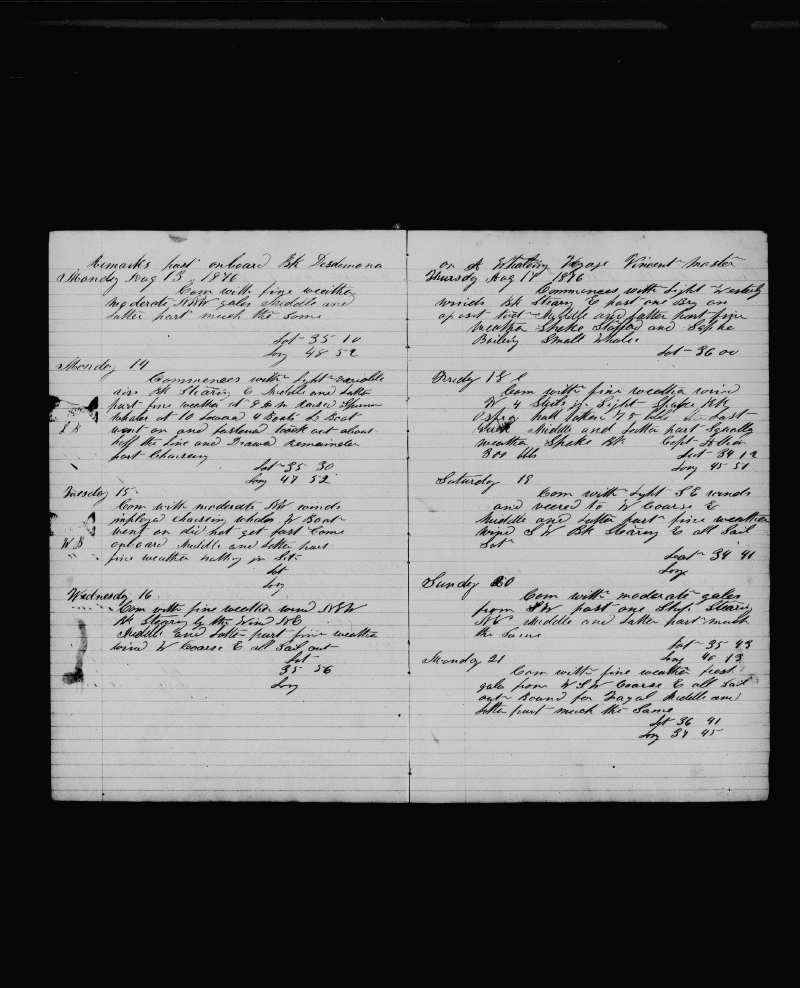 Remarks past onboard Bk Desdemona
Monday Aug 13, 1876
Com with fine weather
moderate NNW gales Middle and
latter part much the same
Lat 35 10
Long 48 52
Monday 14
Commences with light variable
airs Bk Stearing E Middle and latter
part fine weather at 8 Am Raised Sperm
whales at 10 lowerd 4 Boats L Boat
went on and fastened took out about
half the line and Drawd remainder
part Chaseing
Lat 35 30
Long 47 52
Tuesday 15
Com with moderate NW winds
imployd chaseing whales W Boat
went on did not get fast Come
W B
onboard Middle and latter part
fine weather nothing in Sit
Lat
Long
Wednesday 16
Com with fine weather wind NNW
Bk Stearing by the Wind NE
Middle and latter part fine weather
wind W Coarse E all Sail out
Lat
35 56
Long
on A Whaleing Voyage Vincent Master
Thursday Aug 17 1876
Commences with light Westerly
winds Bk Stearing E past one Brig on
aposit tack Middle and latter part fine
weather Spoke Stafford and
Boiling Small Whale
Lat 36 00
Friday 18
Com with fine weather wind
W 4 Ships in Sight Spoke Bk
Osprey had taken 75 bbls
Middle and latter part Squally
weather Spoke Bk Capt
300 bbls
Lat 34 12
Long 45 51
Saturday 19
Com with light SE winds
and veered to W Coarse E
Middle and latter part fine weather
wind SW Bk Stearing E all Sail
Set
Lat 34 41
Long
Sunday 20
Com with moderate gales
from SW past one Ship Stearing
NW Middle and latter part much
the Same
Lat 35 43
Long 40 13
Monday 21
Com with fine weather fresh
gales from WSW Coarse E all Sail
out Bound for Fayal Middle and
latter part much the Same
Lat 36 41
Long 37 45